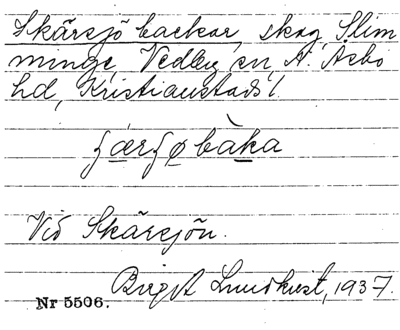 Skärsjö backar, skog, Slim
minge, Vedby sn, N. Åsbo
hd, Kristianstads l.
ʃærʃøbàka
Vid Skärsjön.
Birgit Lundkvist, 1937.
Nr 5506.